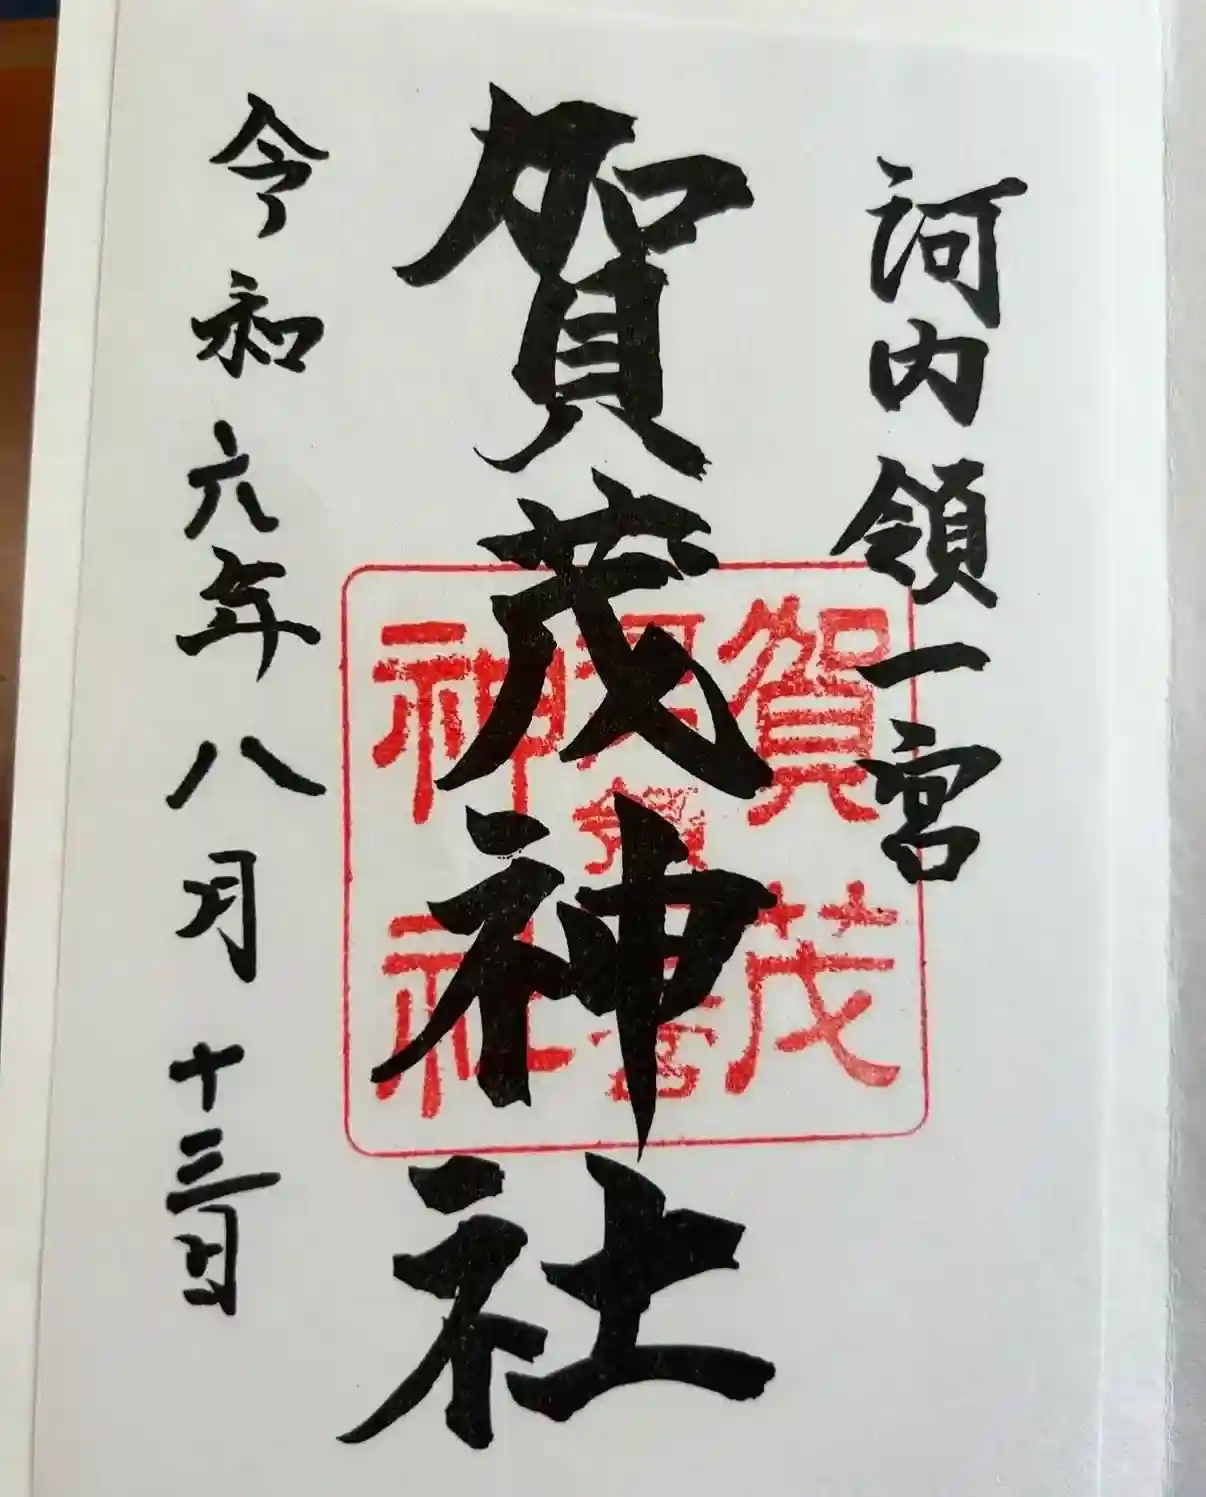 河内領一宮
賀茂神社
令和六年八月十三日
賀茂
神社